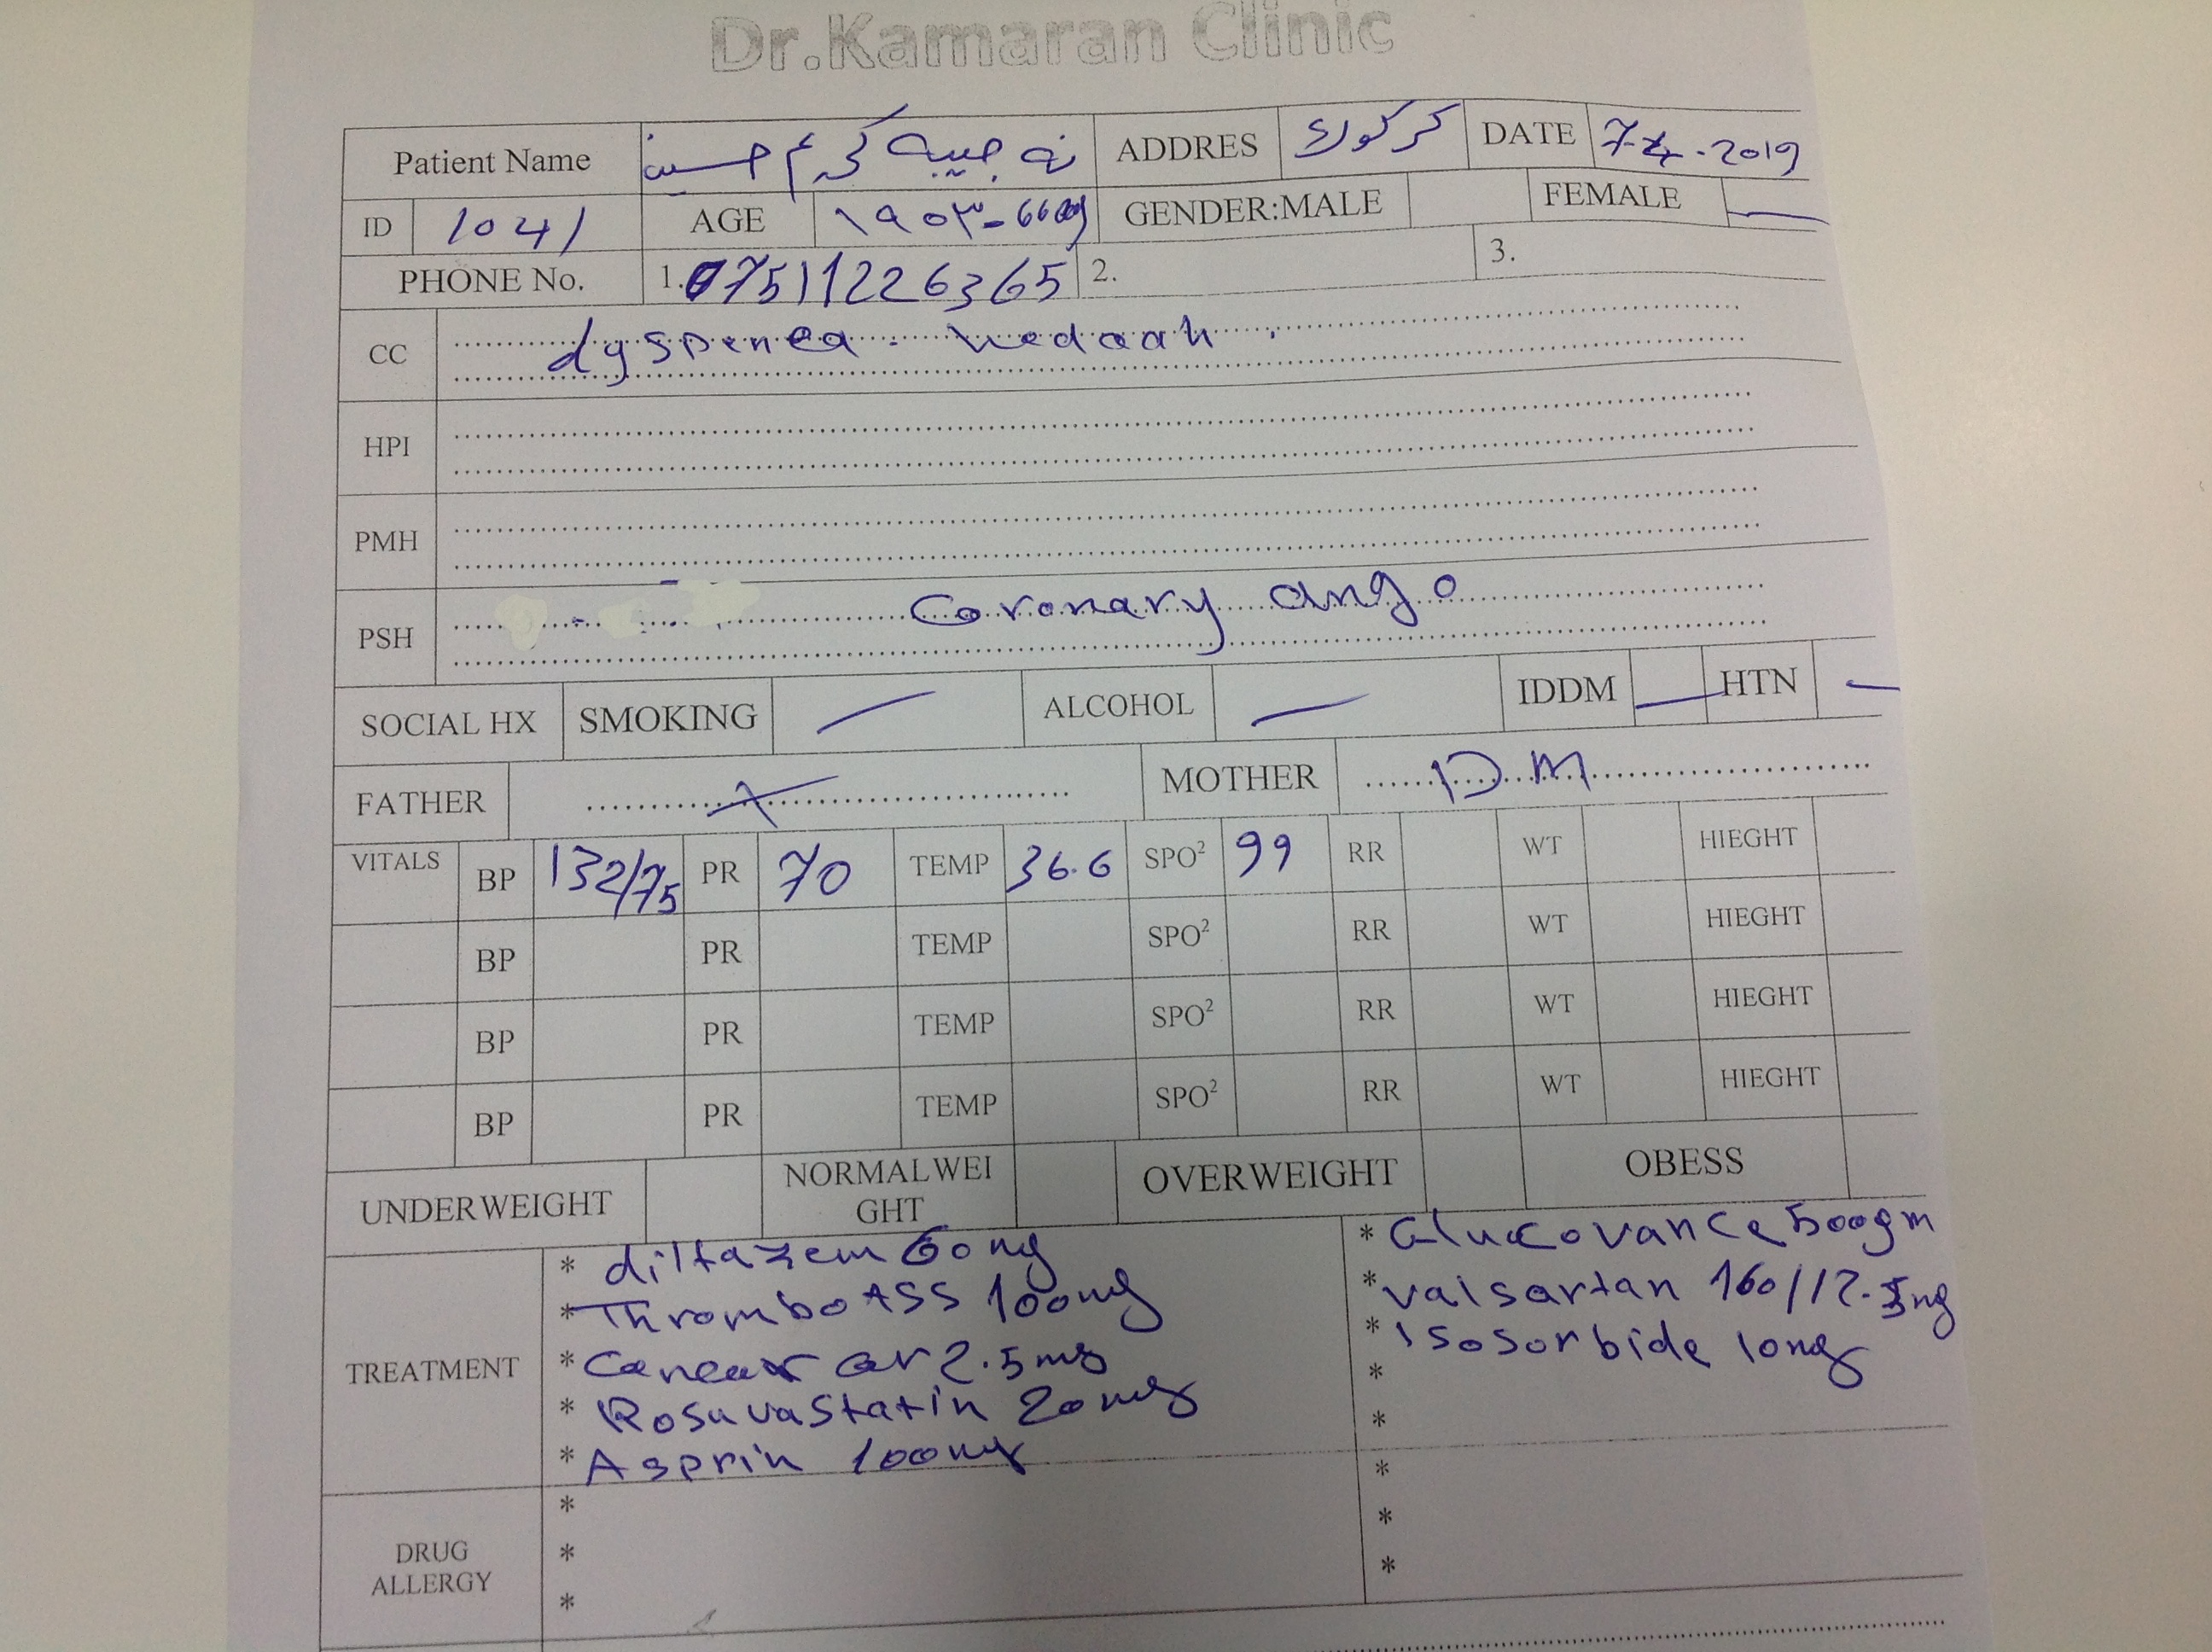 Dr.Kamaran Clinic
Patient Name نه جيبه كريم حسين ADDRES كركوك DATE 7-4-2019
ID 1041 AGE GENDER:MALE FEMALE
PHONE No. 1.07511226365 2. 3.
CC dyspenea. hedaah.
HPI
PMH
PSH Coronary ango
SOCIAL HX SMOKING ALCOHOL IDDM HTN
FATHER MOTHER D.M
VITALS BP 132/75 PR 70 TEMP 36.6 SPO² 99 RR WT HIEGHT
BP PR TEMP SPO² RR WT HIEGHT
BP PR TEMP SPO² RR WT HIEGHT
BP PR TEMP SPO² RR WT HIEGHT
UNDERWEIGHT NORMALWEI
GHT OVERWEIGHT OBESS
TREATMENT
* diltazem 60 mg
* Thrombo ASS 100mg
* 2.5mg
* Rosuvastatin 20mg
* Asprin 100mg
* Glucovance 500gm
* valsartan 160/12.5mg
* isosorbide 10mg
*
*
DRUG
ALLERGY
*
*
*
*
*
*